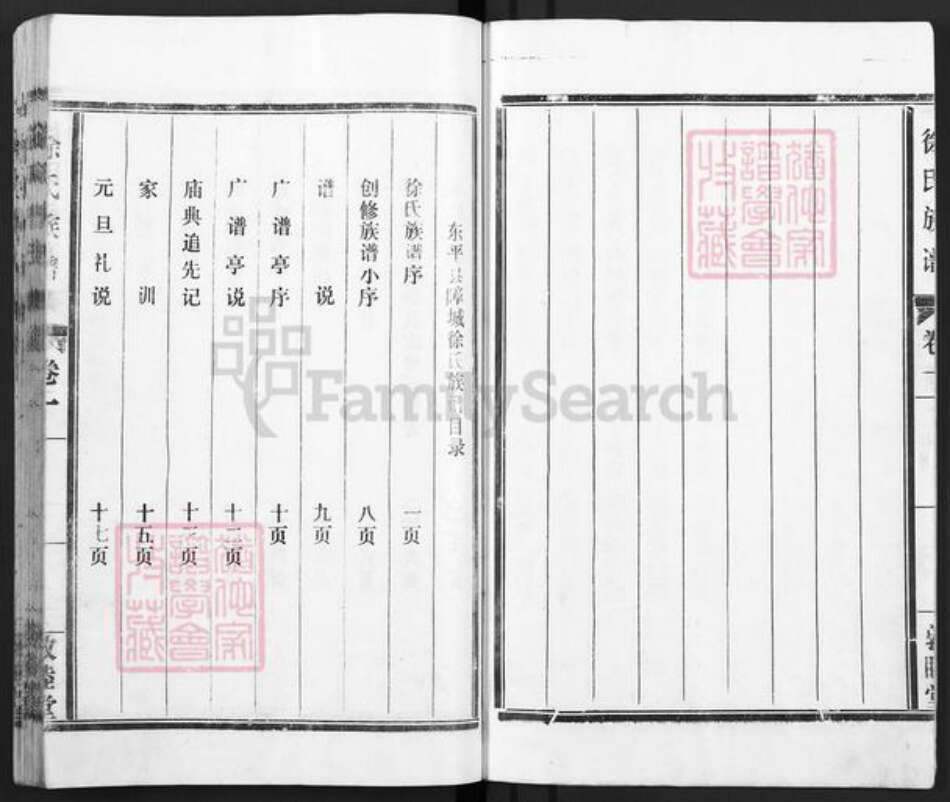 东平县障城徐氏族谱目录
徐氏族谱序 一页
创修族谱小序 八页
谱说 九页
广谱亭序 十页
广谱亭说 十二页
庙典追先记 页
家训 十五页
元旦礼说 十七页
徐氏族谱
卷一
敦睦堂
徐氏族谱
卷一
敦睦堂
FamilySearch